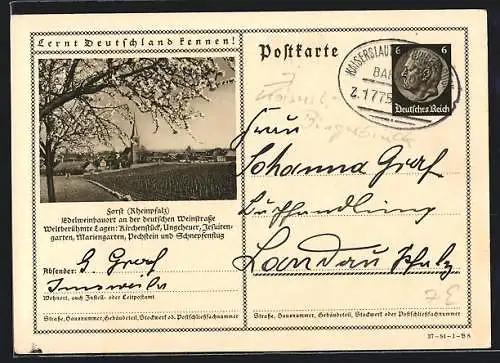 Lernt Deutschland kennen!
Forst (Rheinpfalz)
Edelweinbauort an der deutschen Weinstraße
Weltberühmte Lagen: Kirchenstück, Ungeheuer, Jesuiten-
garten, Mariengarten, Pechstein und Schnepfenflug
Absender: G. Graf
Wohnort, auch Zustell- oder Leitpostamt
Straße, Hausnummer, Gebäudeteil, Stockwerk od. Postschließfachnummer
Postkarte
6 6
Deutsches Reich
BAH
Z.1775
Frau
Johanna Graf
Buchhandlung
Landau Pfalz
Straße, Hausnummer, Gebäudeteil, Stockwerk oder Postschließfachnummer